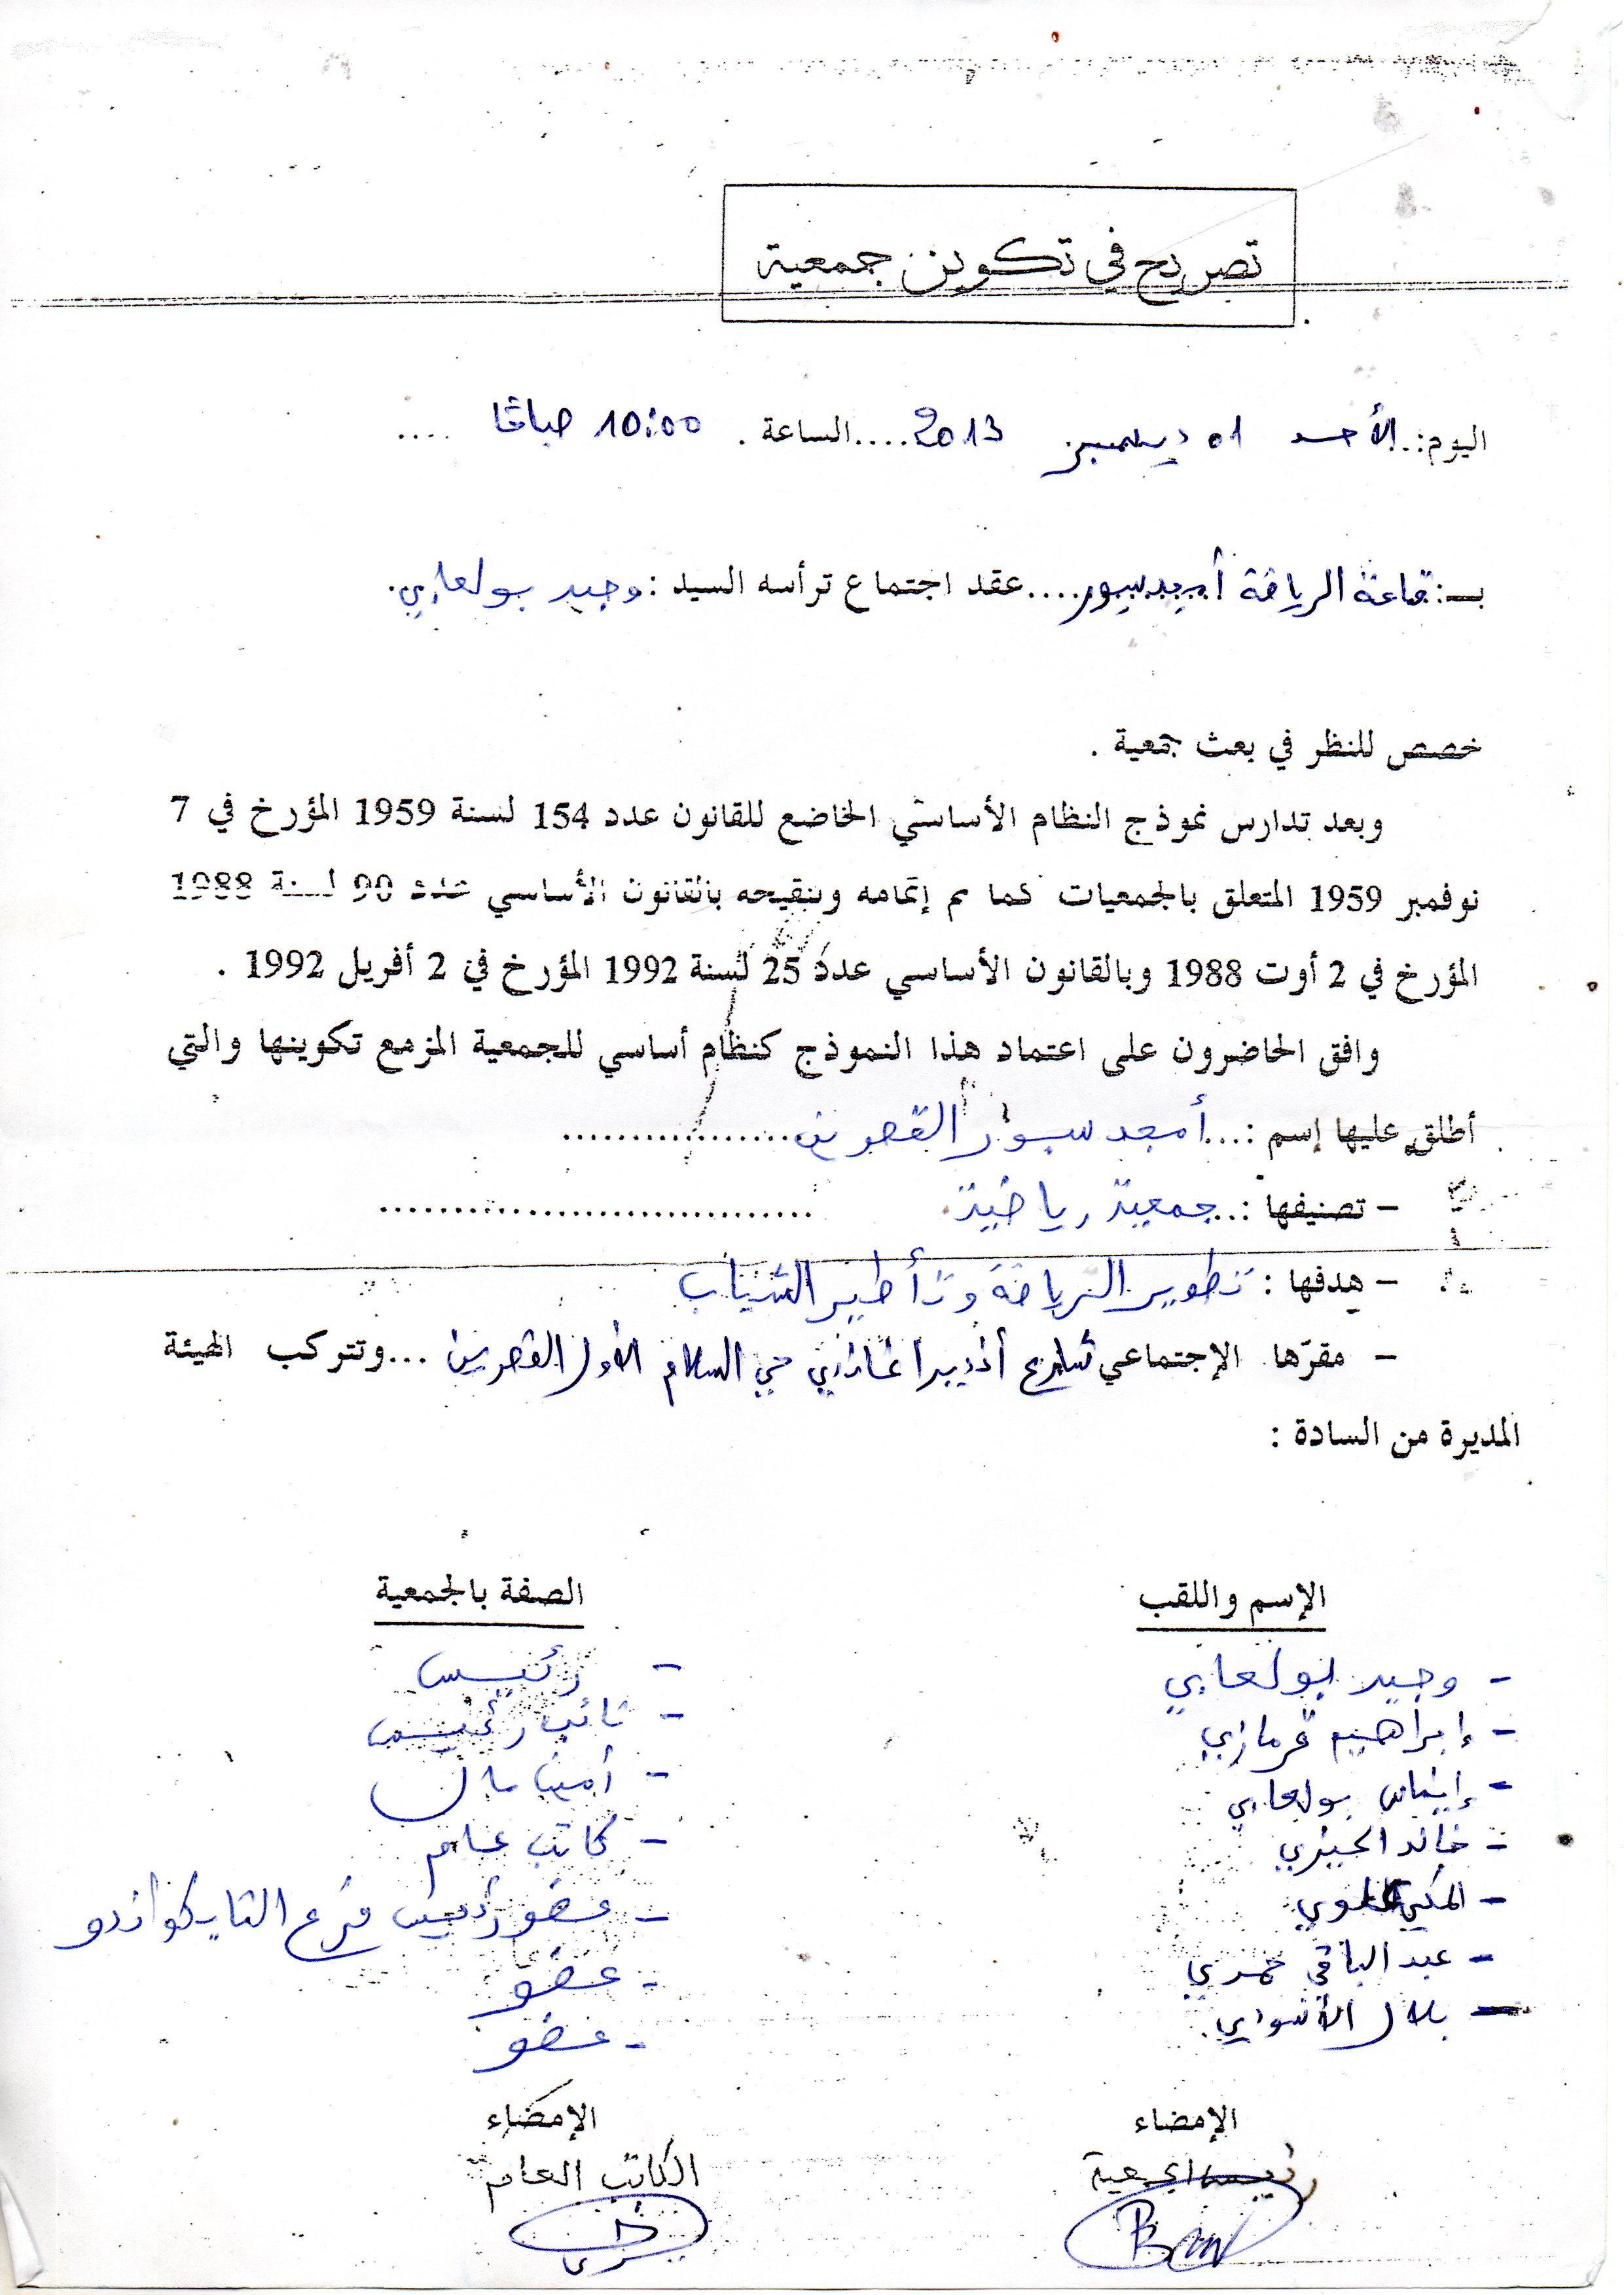 تصريح في تكوين جمعية
اليوم:..الأحد 01 ديسمبر 2013....الساعة . 10:00 صباحا ....
بـ: قاعة الرياضة أمجد سبور....عقد اجتماع ترأسه السيد : وحيد بولعابي.
خصص للنظر في بعث جمعية .
وبعد تدارس نموذج النظام الأساسي الخاضع للقانون عدد 154 لسنة 1959 المؤرخ في 7
نوفمبر 1959 المتعلق بالجمعيات كما تم إتمامه وتنقيحه بالقانون الأساسي عدد 90 لسنة 1988
المؤرخ في 2 أوت 1988 وبالقانون الأساسي عدد 25 لسنة 1992 المؤرخ في 2 أفريل 1992 .
وافق الحاضرون على اعتماد هذا النموذج كنظام أساسي للجمعية المزمع تكوينها والتي
أطلق عليها إسم :...أمجد سبور القصرين..................
- تصنيفها :..جمعية رياضية. ...............................
- هدفها : تطوير الرياضة و تأطير الشباب
- مقرّها الإجتماعي شارع أنديرا غاندي حي السلام الأول القصرين ...وتتركب الهيئة
المديرة من السادة :
الإسم واللقب الصفة بالجمعية
- وحيد بولعابي - رئيس
- إبراهيم قرمازي - نائب رئيس
- إيناس بولعابي - أمين مال
- خالد الجبري - كاتب عام
- المكي - عضو رئيس فرع التايكواندو
- عبد الباقي عمري - عضو
- بلال - عضو
الإمضاء الإمضاء
رئيس الجمعية الكاتب العام